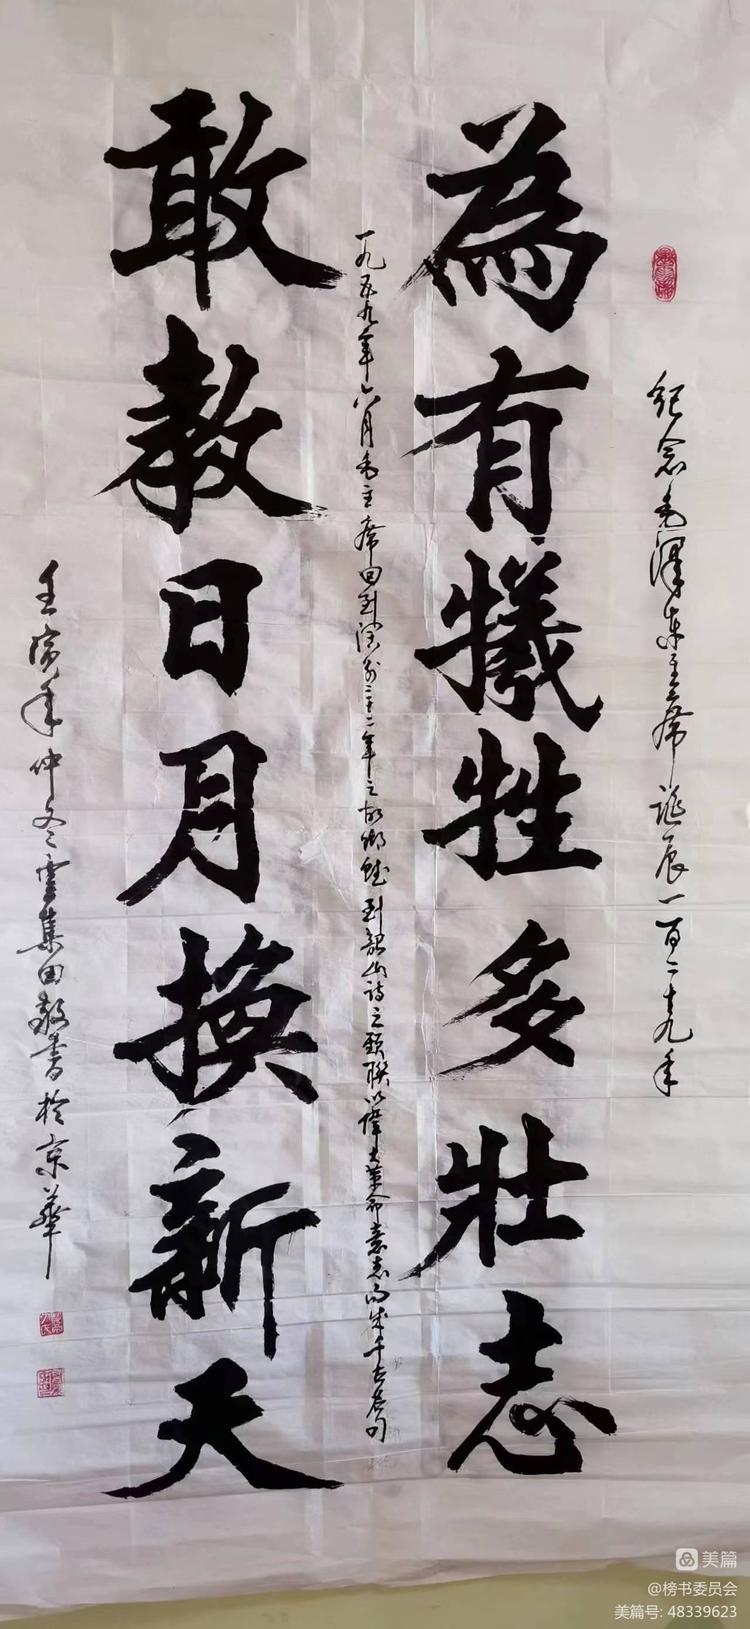 紀念毛澤東主席誕辰一百二十九年
為有犧牲多壯志
一九五九年六月毛主席回到濶別三十二年之故鄉
到韶山詩之頸聯以偉大革命意志而成千古名句
敢教日月換新天
壬寅年仲冬雲集田毅書於京華
美篇
@榜书委员会
美篇号: 48339623